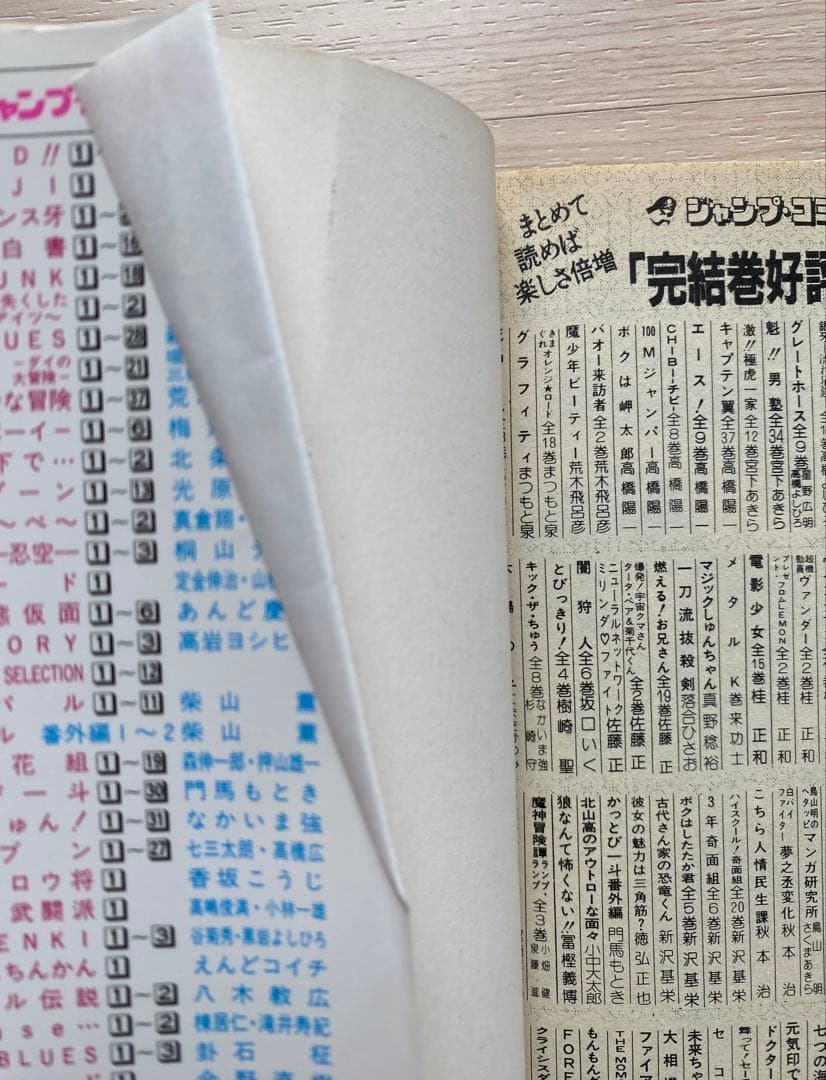 ャンプ・
D!! 1~
J I 1
ンス牙 1~
白書 1~19
UNK 1~18
失くした
アイツ~ 1~2
UES 1~28
-ダイの
大冒険- 1~21
な冒険 1~37 荒
ーイー 1~6 梅
下で… 1~2 北条
ゾーン 1~13 光原
~ぺ~ 1~2 真倉翔・
―忍空― 1~3 桐山
ード 1 定金伸治・山
熊仮面 1~6 あんど慶
ORY 1~3 高岩ヨシヒ
SELECTION 1~12
バル 1~11 柴山薫
ル 番外編1~2 柴山薫
花組 1~19 森伸一郎・押山雄一
一斗 1~30 門馬もとき
ゅん! 1~31 なかいま強
ブン 1~27 七三太朗・高橋広
ロウ将 1 香坂こうじ
武闘派 1 高嶋俊満・小林一雄
ENKI 1~3 谷菊秀・黒岩よしひろ
ちんかん 1 えんどコイチ
ル伝説 1~2 八木教広
use… 1~2 棟居仁・滝井寿紀
BLUES 1~3 卦石征
まとめて
読めば
楽しさ倍増
ジャンプ・コミ
「完結巻好評
グレートホース全9巻 星野広明 高橋よしひろ
魁!!男塾全34巻宮下あきら
激!!極虎一家全12巻宮下あきら
キャプテン翼全37巻高橋陽一
エース!全9巻高橋陽一
CHIBI-チビ-全8巻高橋陽一
100Mジャンパー高橋陽一
ボクは岬太郎高橋陽一
バオー来訪者全2巻荒木飛呂彦
魔少年ビーティー荒木飛呂彦
きまぐれオレンジ★ロード全18巻まつもと泉
グラフィティまつもと泉
超機動員ヴァンダー全2巻桂正和
プレゼント・フロムLEMON全2巻桂正和
電影少女全15巻桂正和
メタルK巻来功士
マジックしゅんちゃん真野稔裕
一刀流抜殺剣落合ひさお
燃える!お兄さん全19巻佐藤正
爆発!宇宙クマさん
タータ・ベア&菊千代くん全2巻佐藤正
ニューラルネットワーク
ミリンダ♡ファイト佐藤正
闇狩人全6巻坂口いく
とびっきり!全4巻樹崎聖
キック・ザ・ちゅう全8巻なかいま強 杉崎守
鳥山明のヘタッピマンガ研究所 鳥山明 さくまあきら
白バイファイター夢之丞変化秋本治
こちら人情民生課秋本治
ハイスクール!奇面組全20巻新沢基栄
3年奇面組全6巻新沢基栄
ボクはしたたか君全5巻新沢基栄
古代さん家の恐竜くん新沢基栄
彼女の魅力は三角筋?徳弘正也
かっとび一斗番外編門馬もとき
北山高のアウトローな面々小中大太郎
狼なんて怖くない!!冨樫義博
魔神冒険譚ランプ・ランプ全3巻小畑健 泉藤進
七つの海
元気印で
ドクター
舞って!セー
セコ
未来ちゃ
大相
ファイア
THE MOM
もんもん
FORE
クライシスダ